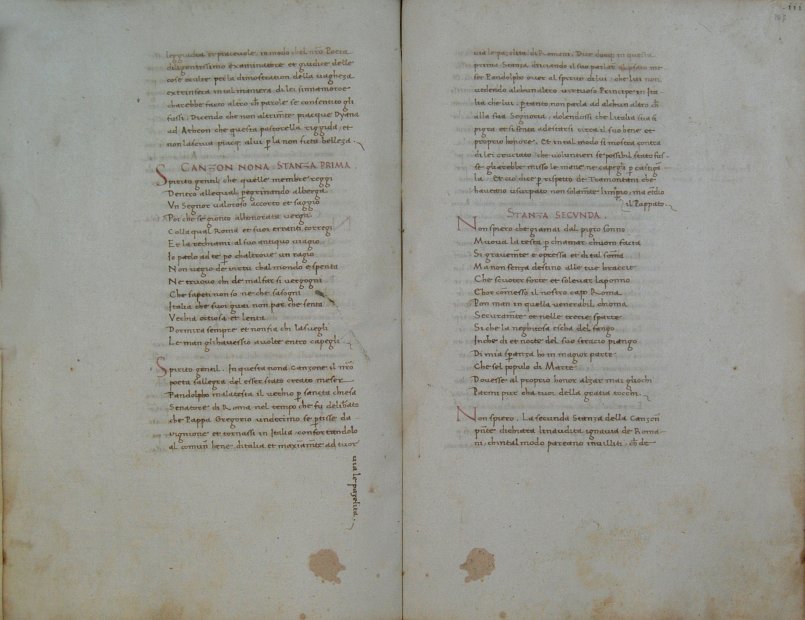 leggiadra et piacevole, in modo chel nro Poeta
diligentissimo examinatore et giudice delle
cose scritte per la dimostration della vagheza
extrinseca in tal maniera di lei sinnamoro che
charebbe facto altro ch parole se consentito gli
fussi. Dicendo che non altrimte piacque Dyana
ad Atheon che questa pastorella riggida, et
non lasciva piacq alui p la non fucta belleza.
CANZON NONA. STANZA PRIMA
Spirito gentil che quelle membre reggi
Dentro allequal pegrinando alberga
Vn Segnor valoroso accorto et saggio
Poi che se gionto alhonorata verga
Colla qual Roma et suoi erranti correggi
Et la rechiami al suo antiquo viagio
Io parlo ad te po chaltrove un ragio
Non vegio de virtu chal mondo e spenta
Ne truovo chi de mal far si vergogni
Che saspeti non so ne che sasogni
Italia che suoi guai non par che senta
Vechia otiosa et lenta
Dormira sempre et non fia chi la svegli
Le man gli havessio avolte entro capegli
Spirito gentil. In questa nona Canzone il nro
poeta sallegra del esser stato creato meser
Pandolpho malatesta il vechio p sancta chiesa
Senatore di Roma nel tempo che fu delibato
che Pappa Gregorio undecimo se ptisse da
vignione et tornassi in Italia confortandolo
al comun bene ditalia, et maximte ad tuor
via le pa, elita.
iii
via le pa, elita di Romani. Dice duncq in questa
prima Stanza drizando il suo parlar al pfato me-
ser Pandolpho over al spirito di lui, che lui non
vedendo alchun altro virtuoso Principe in Ita
lia che lui, ptanto non parla ad alchun altro ch
alla sua Segnoria, dolendosi che litalia stia si
pigra et si lenta adestarsi circa il suo bene et
proprio honore. Et in tal modo si mostra contra
di lei cruciato che volunteri se possibil stato fus
se gliarebbe misso le mane ne capegli p castiga
la. Et co dice p rispetto de Tramontani che
haveano usurpato non solamte limpio, ma etdio
il Pappato.
STANZA SECVNDA.
Non spiero che giamai dal pigro sonno
Muova la testa p chiamar chuom facia
Si gravemte e opressa et di tal soma
Ma non senza destino alle tue braccie
Che scuoter forte et solevar la ponno
E hor comesso il nostro capo Roma
Pon man in quella venerabil chioma
Securamte et nelle treccie sparte
Si che la neghitosa escha del fango
I che di et nocte del suo stracio piango
Di mia speranza ho in magior parte
Che sel populo di Marte
Dovesse al proprio honor alzar mai gliochi
Parmi pur cha tuoi di la gratia tochi
Non spiero. La secunda Stanza della Canzon
pnte dichiara linaudita ignavia de Roma-
ni, ch intal modo pareano inviliti, ch de